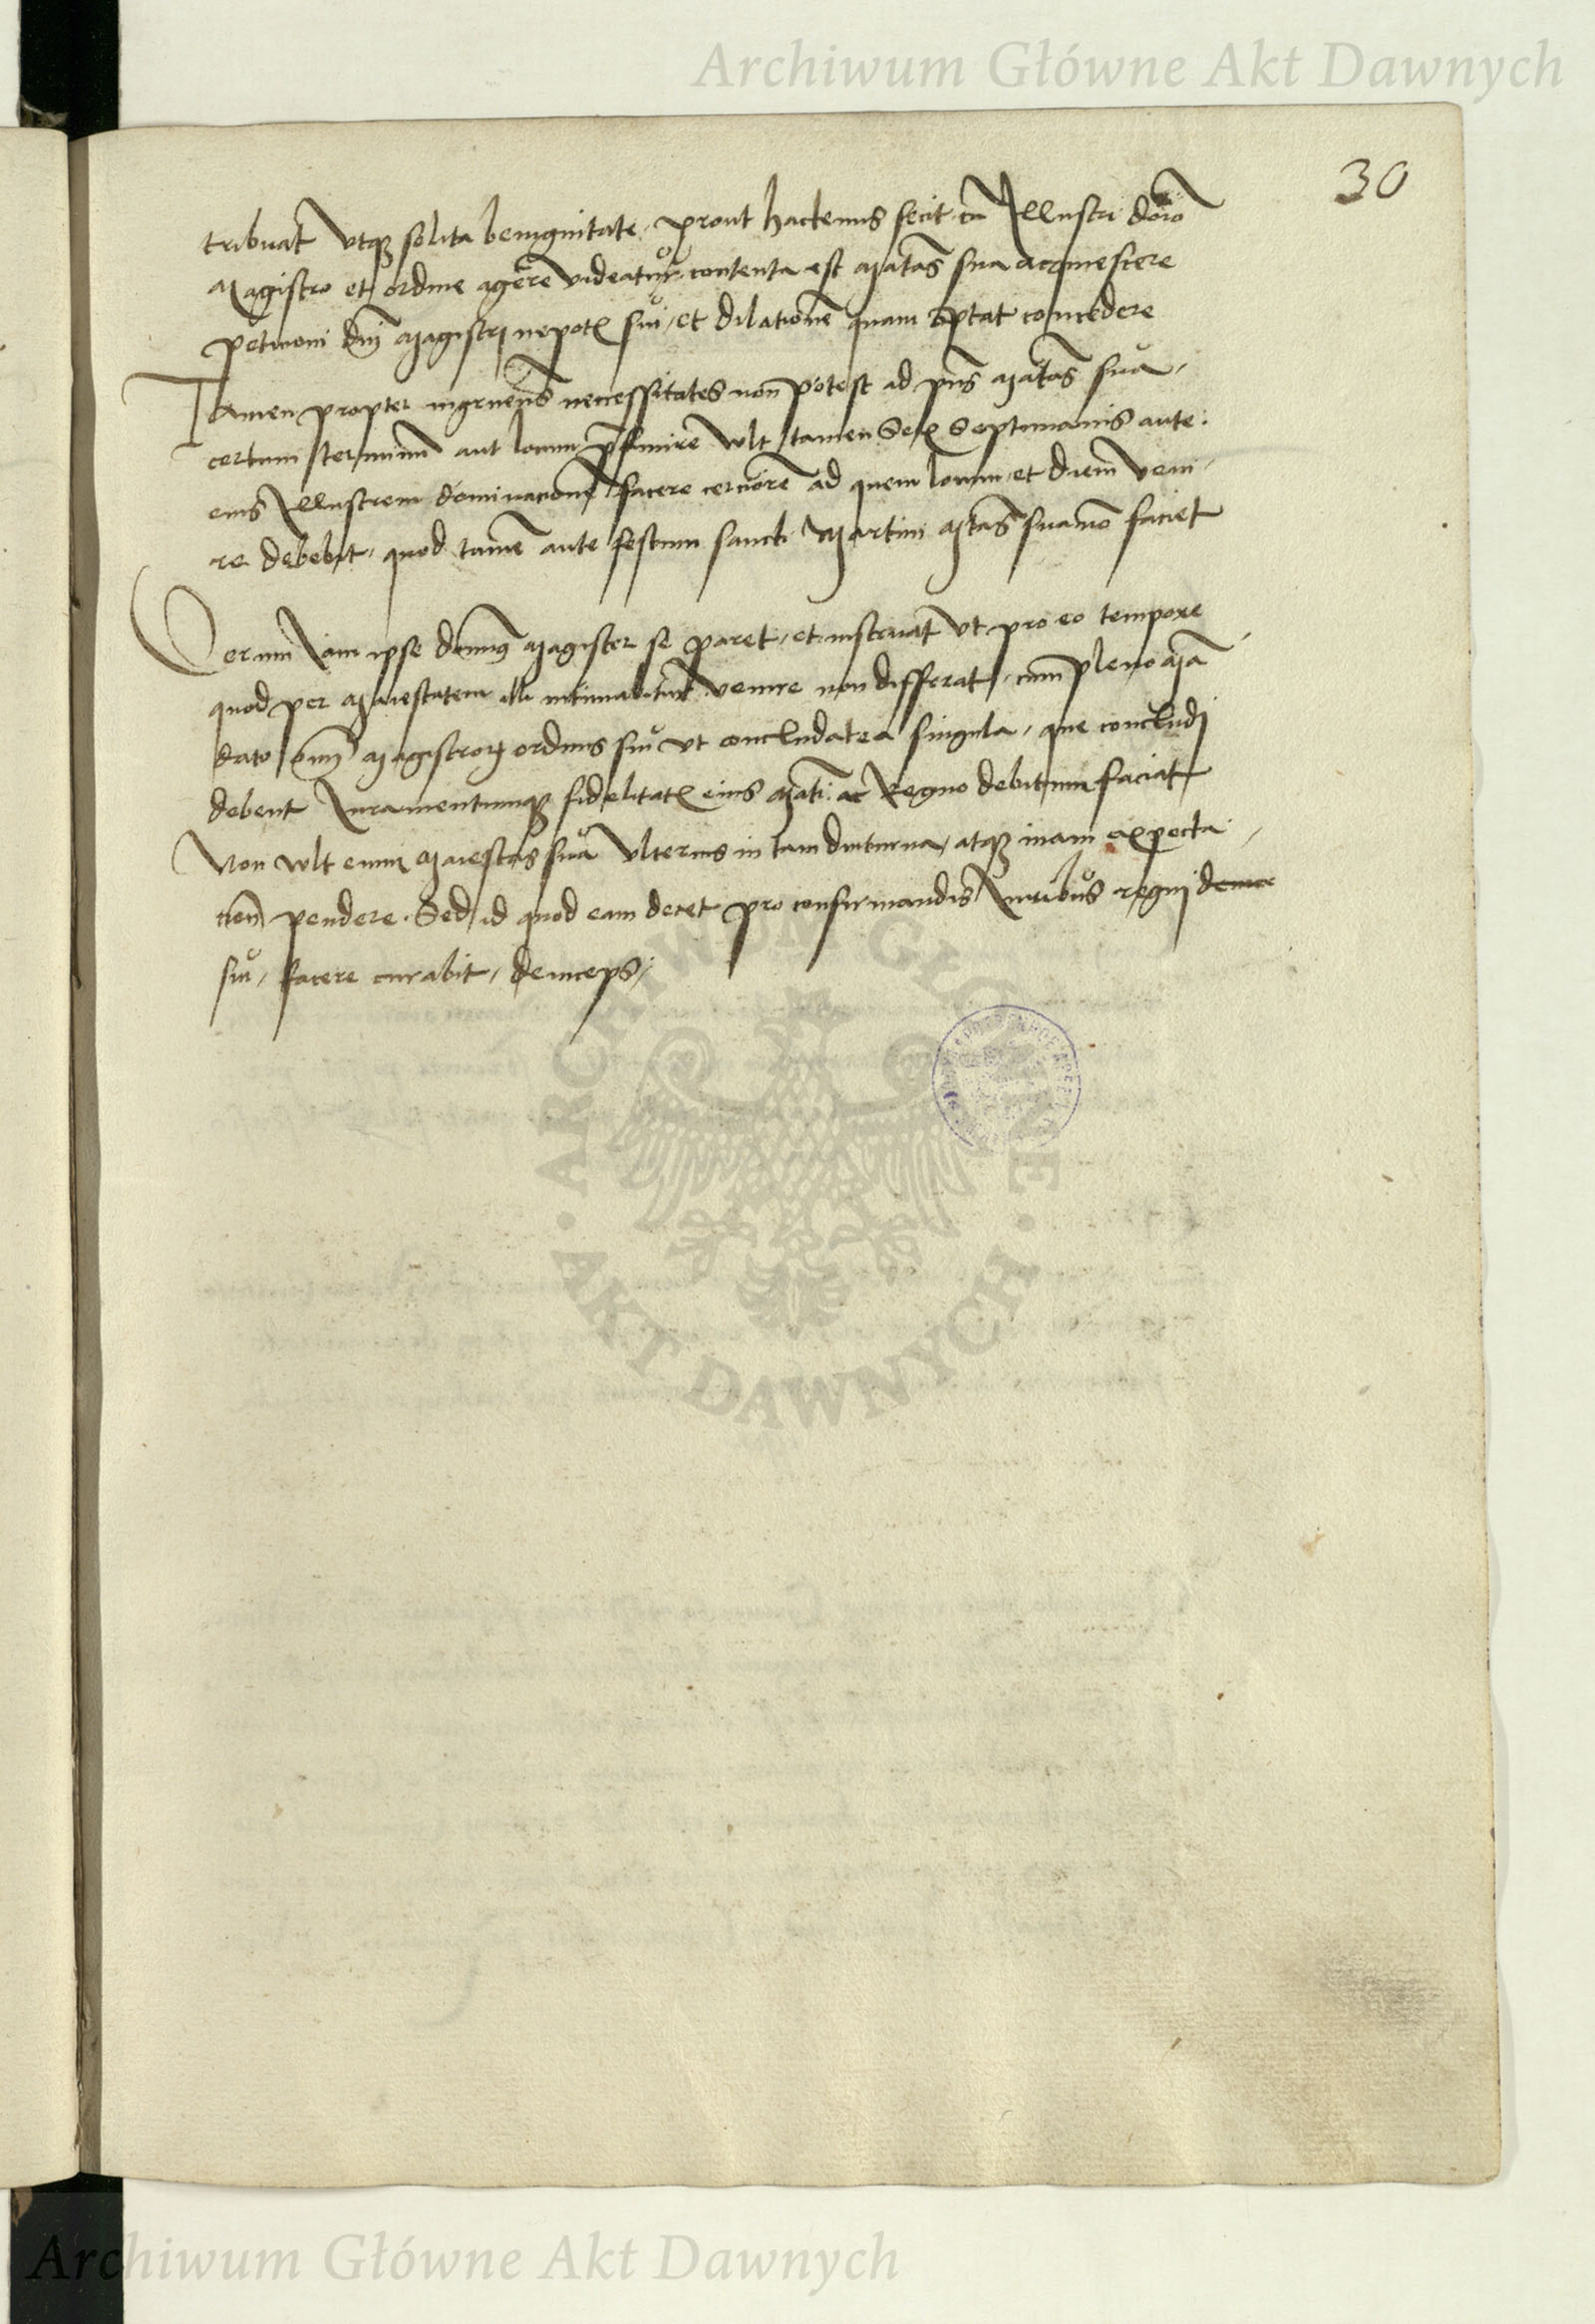 Archiwum Główne Akt Dawnych
30
tribuat vtqz solita benignitate, prout hactenus fecit cū Illustri dōīo
Magistro et ordine agere videatur contenta est Maiātas sua acquiescere
peticioni dnj Magistri nepotis sui, et dilationē quam optat concedere
Tamen propter ingruentes necessitates non potest ad pñs Maiātas sua,
certum terminū aut locum prefinire wlt tamen Sex Septimanis ante
eius Illustrem dominacionē facere cerciorē ad quem locum et diem veni-
re debebit, quod tamē ante festum sancti Martini Mtās sua nō faciet
Verum iam ipse dominus Magister se paret, et instruat vt pro eo tempore
quod per Maiestatem illi intimabitur venire non differat, cum pleno mā
dato omnī Magistrorum ordinis sui vt concludat ea singula, que concludj
debent Iuramentumqz fidelitatis eius Maiāti ac Regno debitum faciat
Non wlt enim Maiestas sua vlterius in tam diuturna, atqz inani expecta-
cione pendere. Sed id quod eam decet pro confirmandis Iuribus regni
sui, facere curabit, deinceps
ARCHIWUM GŁÓWNE
AKT DAWNYCH
Archiwum Główne Akt Dawnych